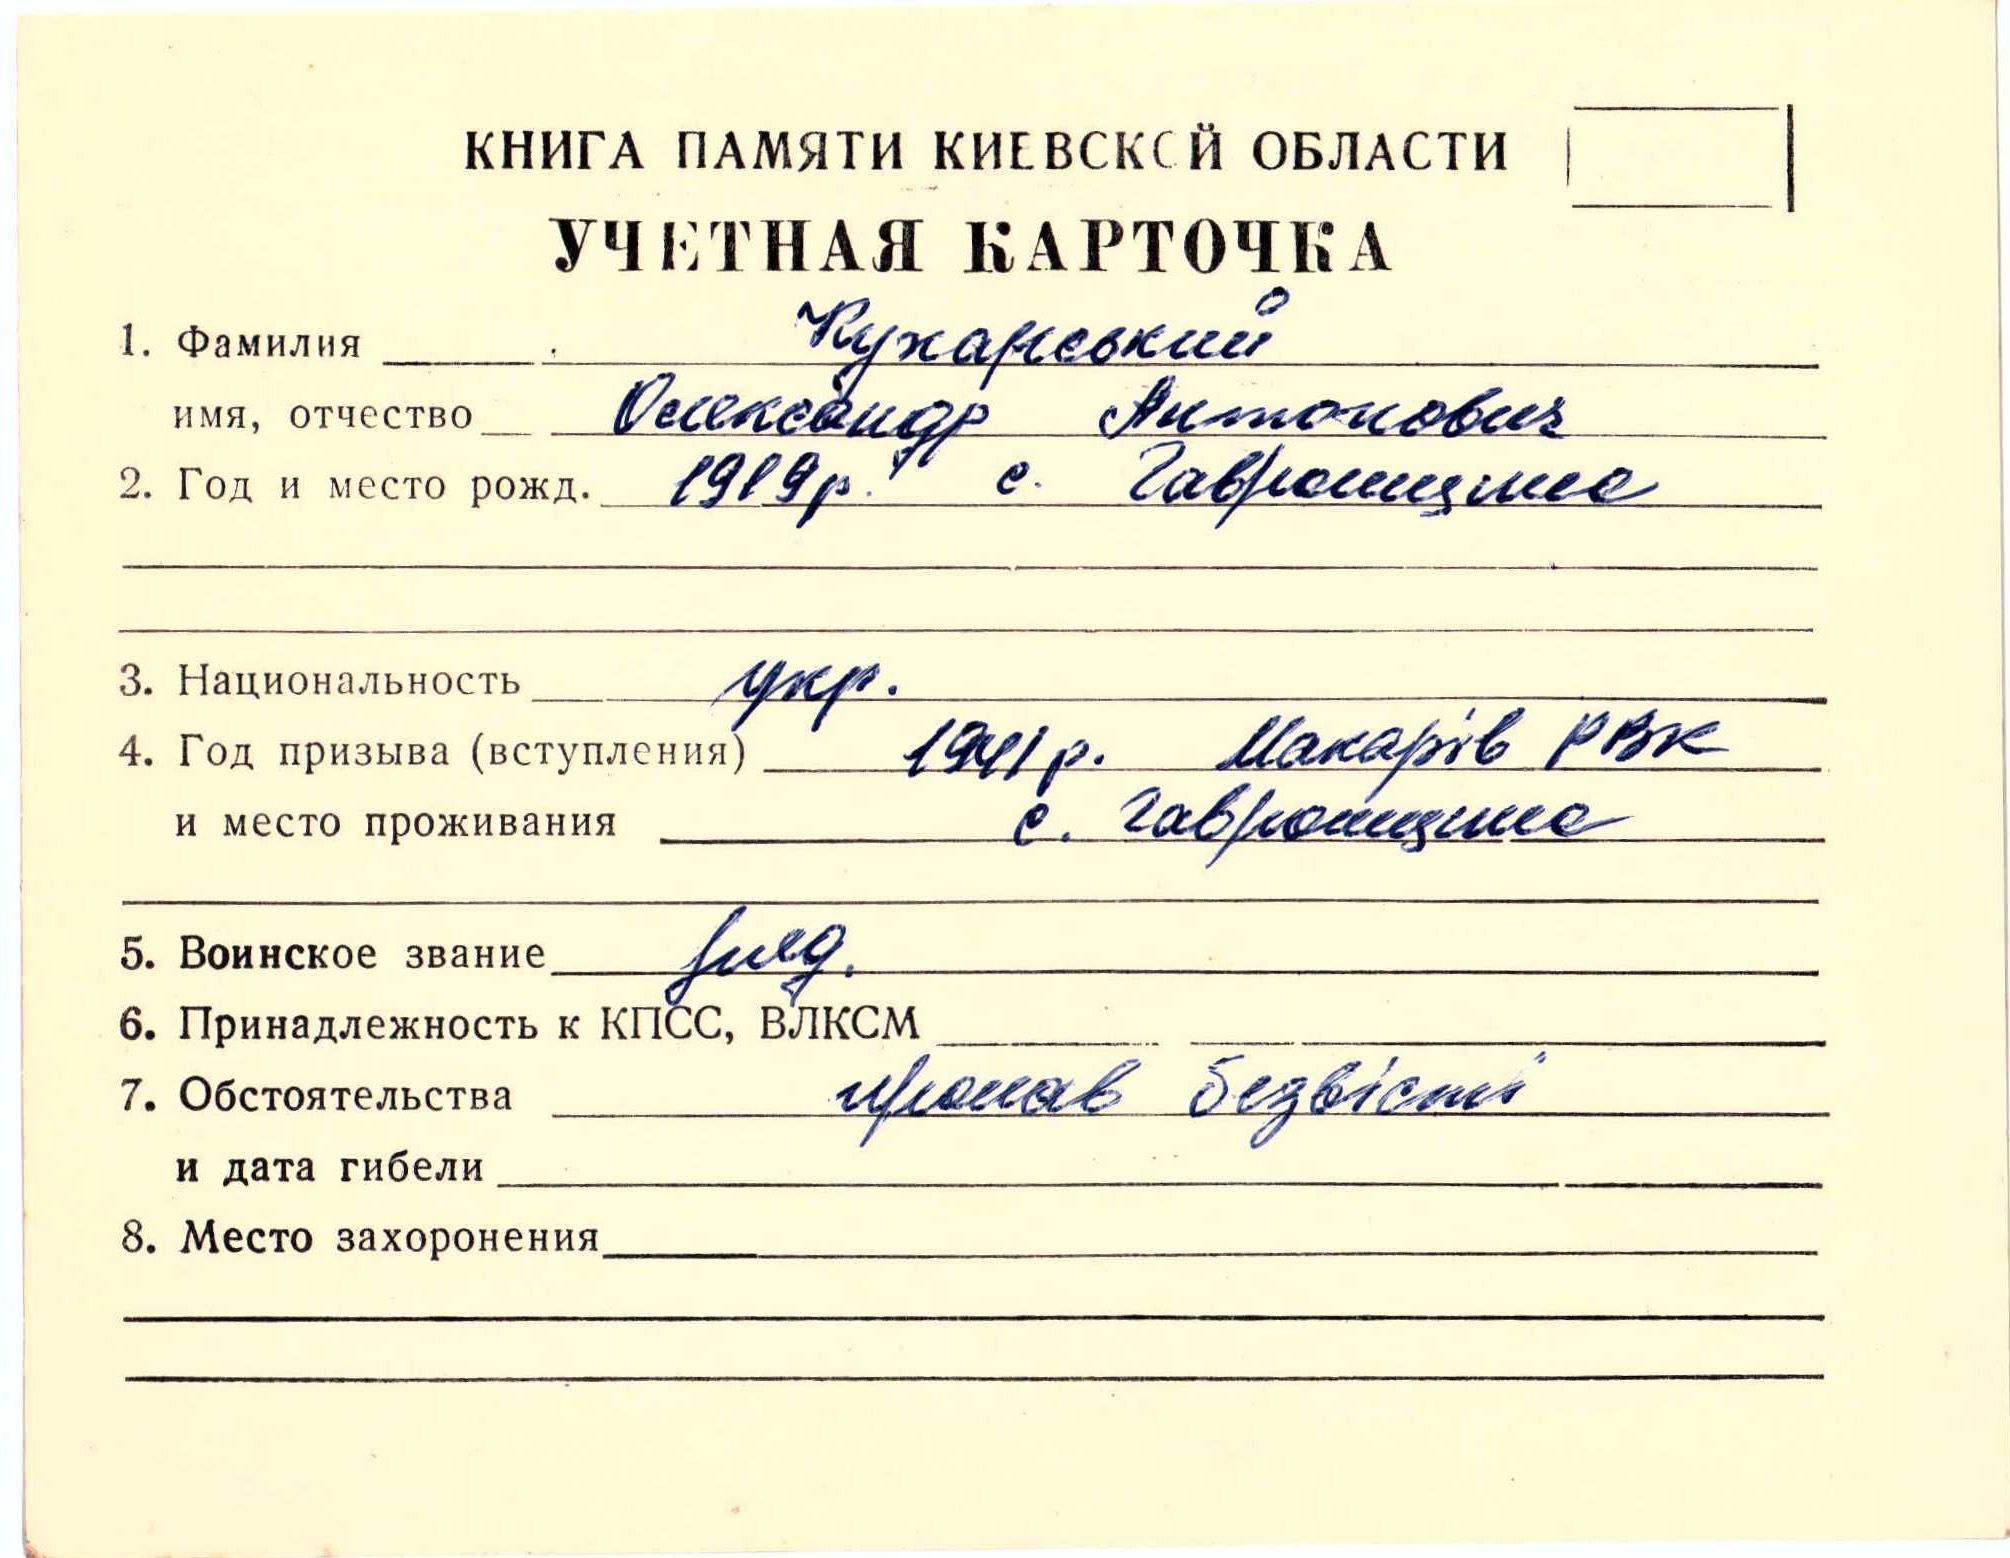 КНИГА ПАМЯТИ КИЕВСКОЙ ОБЛАСТИ
УЧЕТНАЯ КАРТОЧКА
1. Фамилия Кухарський
имя, отчество Олександр Антонович
2. Год и место рожд. 1919 р. с. Гавронщина
3. Национальность укр.
4. Год призыва (вступления) 1941 р. Макарів РВК
и место проживания с. Гавронщина
5. Воинское звание
6. Принадлежность к КПСС, ВЛКСМ
7. Обстоятельства пропав безвісті
и дата гибели
8. Место захоронения